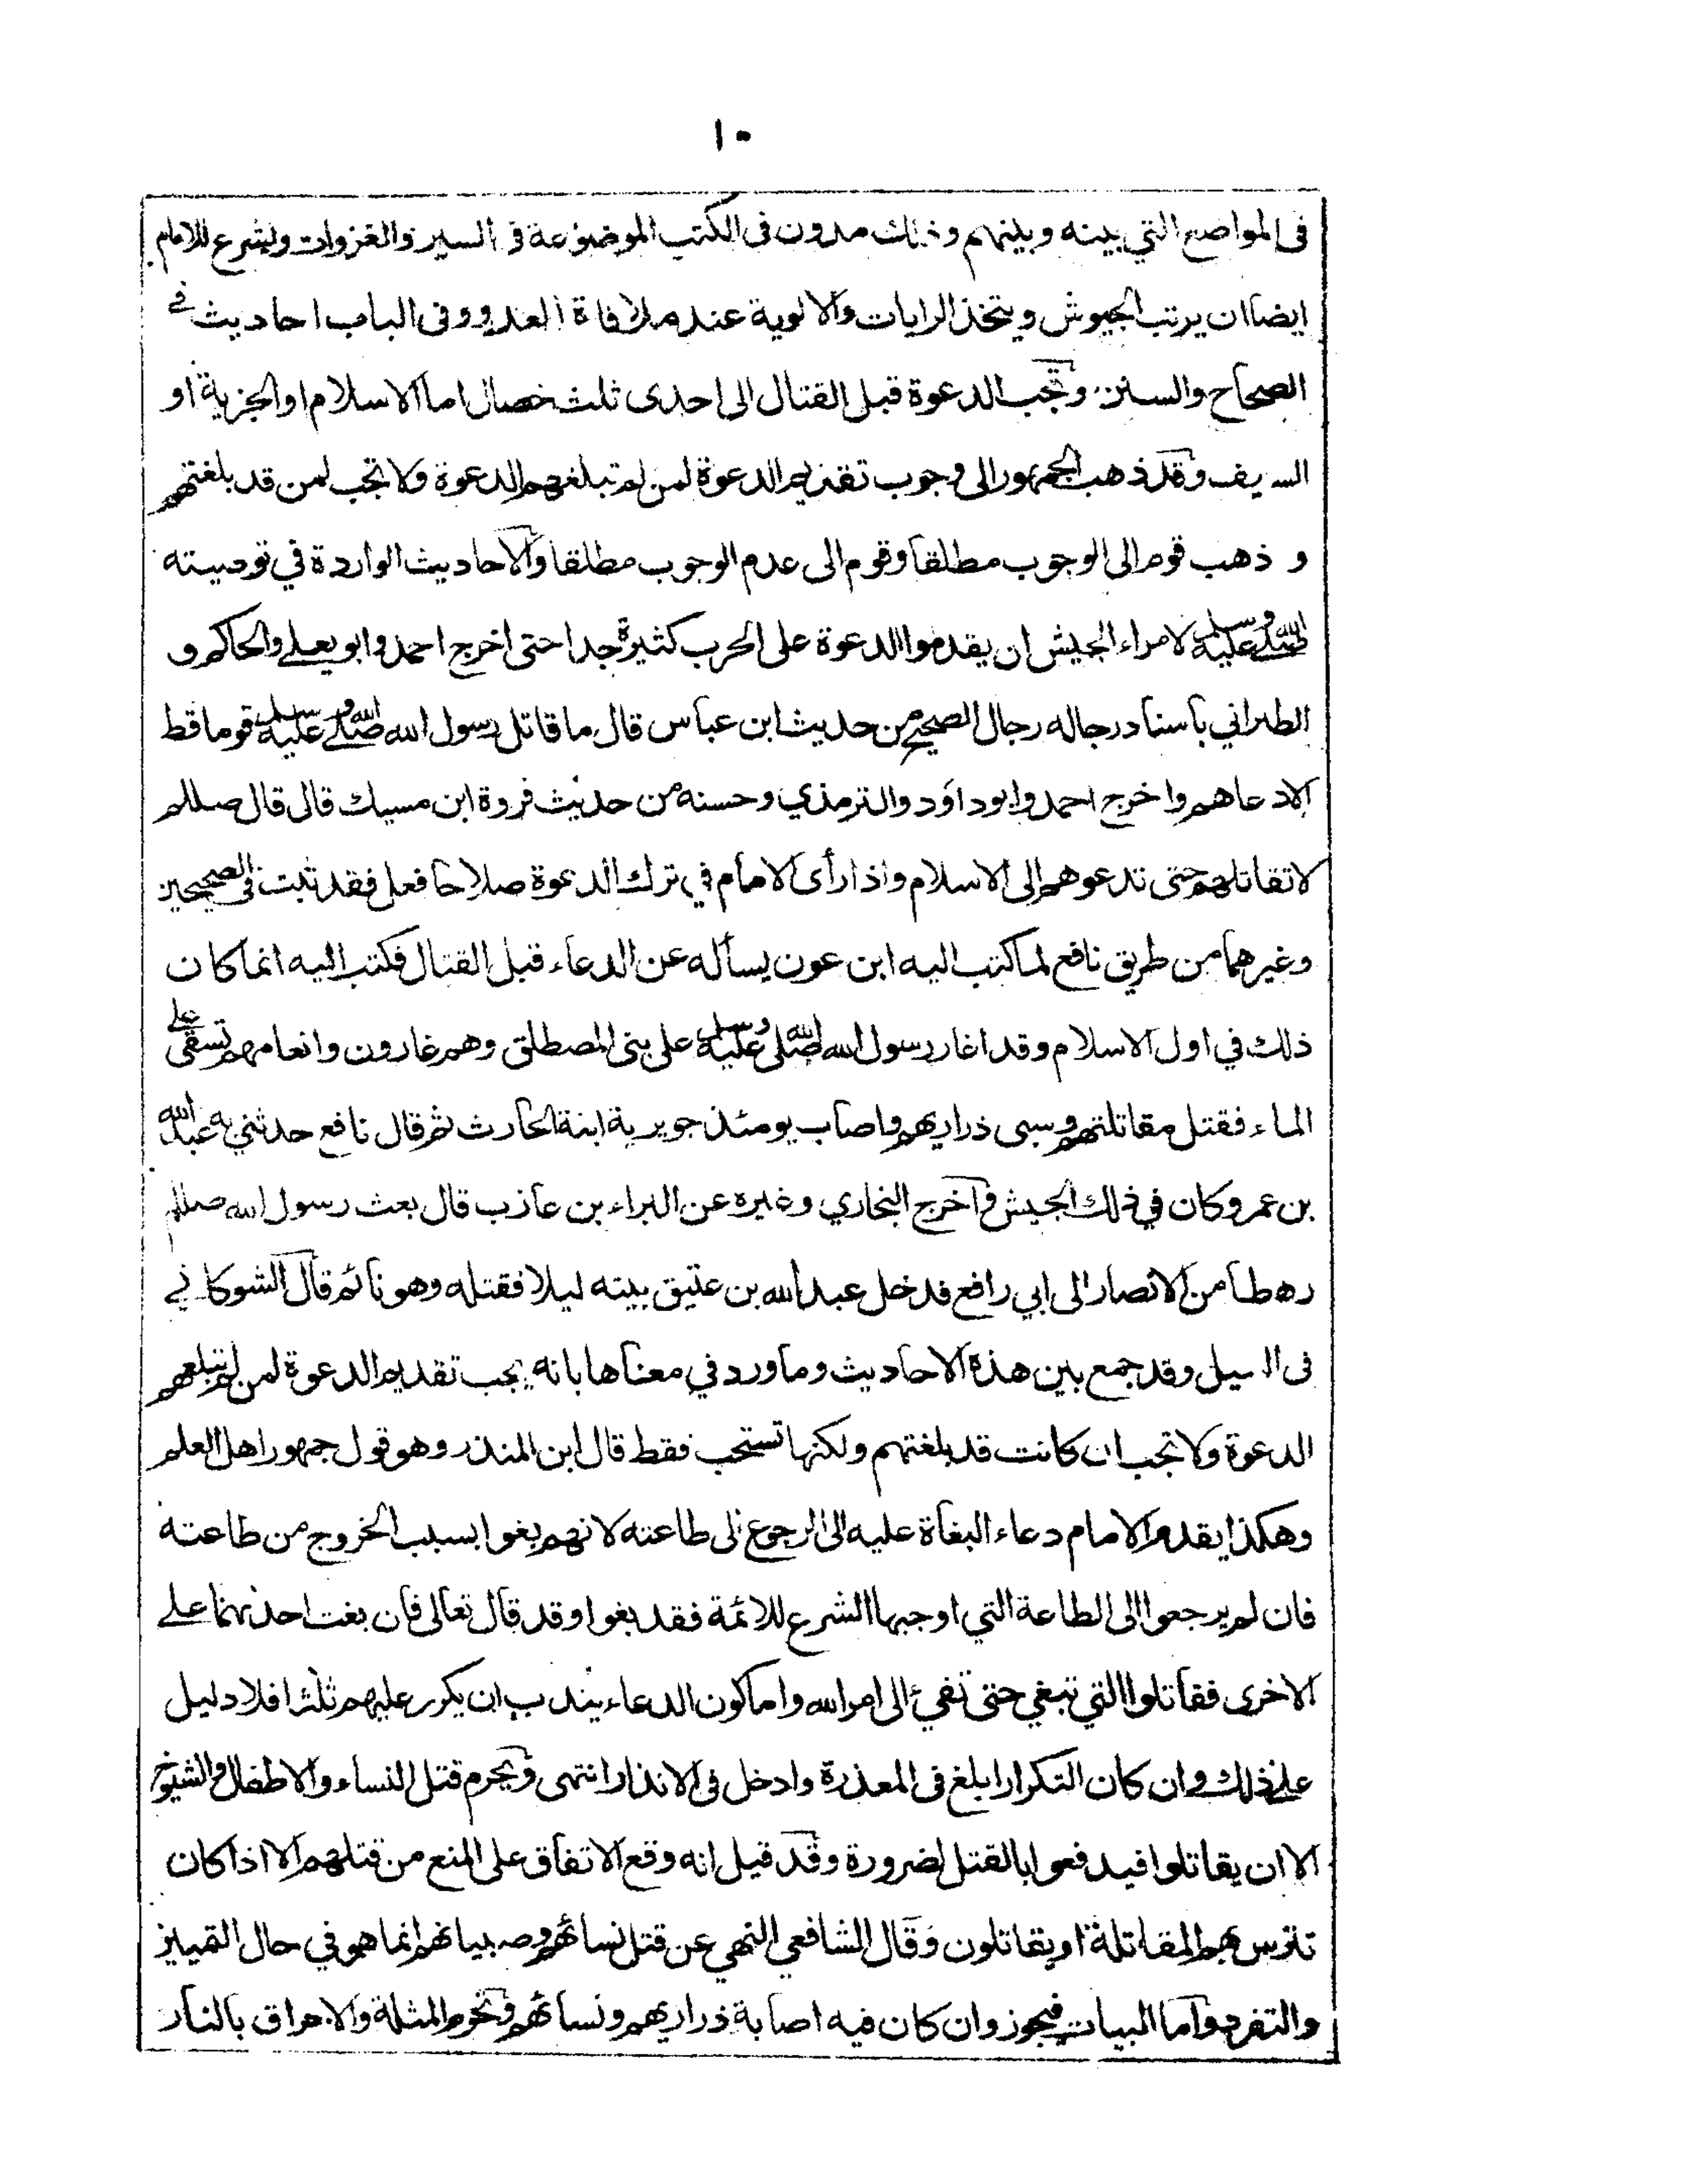 ١٠
فى المواضع التي بينه وبينهم وذلك مدون فى الكتب الموضوعة فى السير والغزوات ويشرع للامام
ايضا ان يرتب الجيوش ويتخذ الرايات والالوية عند ملاقاة العدو وفى الباب احاديث في
الصحاح والسنن وتجب الدعوة قبل القتال الى احدى ثلث خصال اما الاسلام او الجزية او
السيف وقد ذهب الجمهور الى وجوب تقديم الدعوة لمن لم تبلغهم الدعوة ولا تجب لمن قد بلغتهم
و ذهب قوم الى الوجوب مطلقا وقوم الى عدم الوجوب مطلقا والاحاديث الواردة في توصيته
صلى الله عليه وسلم لامراء الجيش ان يقدموا الدعوة على الحرب كثيرة جدا حتى اخرج احمد وابو يعلى والحاكم و
الطبراني باسناد رجاله رجال الصحيح من حديث ابن عباس قال ما قاتل رسول الله صلى الله عليه وسلم قوما قط
الا دعاهم واخرج احمد وابوداود والترمذي وحسنه من حديث فروة ابن مسيك قال قال صللم
لا تقاتلهم حتى تدعوهم الى الاسلام واذا رأى الامام في ترك الدعوة صلاحا فعل فقد ثبت فى الصحيحين
وغيرهما من طريق نافع لما كتب اليه ابن عون يسأله عن الدعاء قبل القتال فكتب اليه انما كان
ذلك في اول الاسلام وقد اغار رسول الله صلى الله عليه وسلم على بنى المصطلق وهم غارون وانعامهم تسقى على
الماء فقتل مقاتلتهم وسبى ذراريهم واصاب يومئذ جويرية ابنة الحارث ثم قال نافع حدثني به عبد الله
بن عمر وكان في ذلك الجيش واخرج البخاري وغيره عن البراء بن عازب قال بعث رسول الله صللم
رهطا من الانصار الى ابي رافع فدخل عبد الله بن عتيق بيته ليلا فقتله وهو نائم قال الشوكاني
فى السيل وقد جمع بين هذه الاحاديث وما ورد في معناها بانه يجب تقديم الدعوة لمن لم تبلغهم
الدعوة ولا تجب ان كانت قد بلغتهم ولكنها تستحب فقط قال ابن المنذر وهو قول جمهور اهل العلم
وهكذا يقدم الامام دعاء البغاة عليه الى الرجوع الى طاعته لانهم بغوا بسبب الخروج من طاعته
فان لم يرجعوا الى الطاعة التي اوجبها الشرع للائمة فقد بغوا وقد قال تعالى فان بغت احدٰهما على
الاخرى فقاتلوا التي تبغي حتى تفيئ الى امر الله واما كون الدعاء يندب ان يكرر عليهم ثلثا فلا دليل
على ذلك وان كان التكرار ابلغ فى المعذرة وادخل فى الانذار انتهى ويحرم قتل النساء والاطفال والشيوخ
الا ان يقاتلوا فيدفعوا بالقتل لضرورة وقد قيل انه وقع الاتفاق على المنع من قتلهم الا اذا كان
تترس بهم المقاتلة او يقاتلون وقال الشافعي النهي عن قتل نسائهم وصبيانهم انما هو في حال التمييز
والتفرد واما البيات فيجوز وان كان فيه اصابة ذراريهم ونسائهم وتحرم المثلة والاحراق بالنار